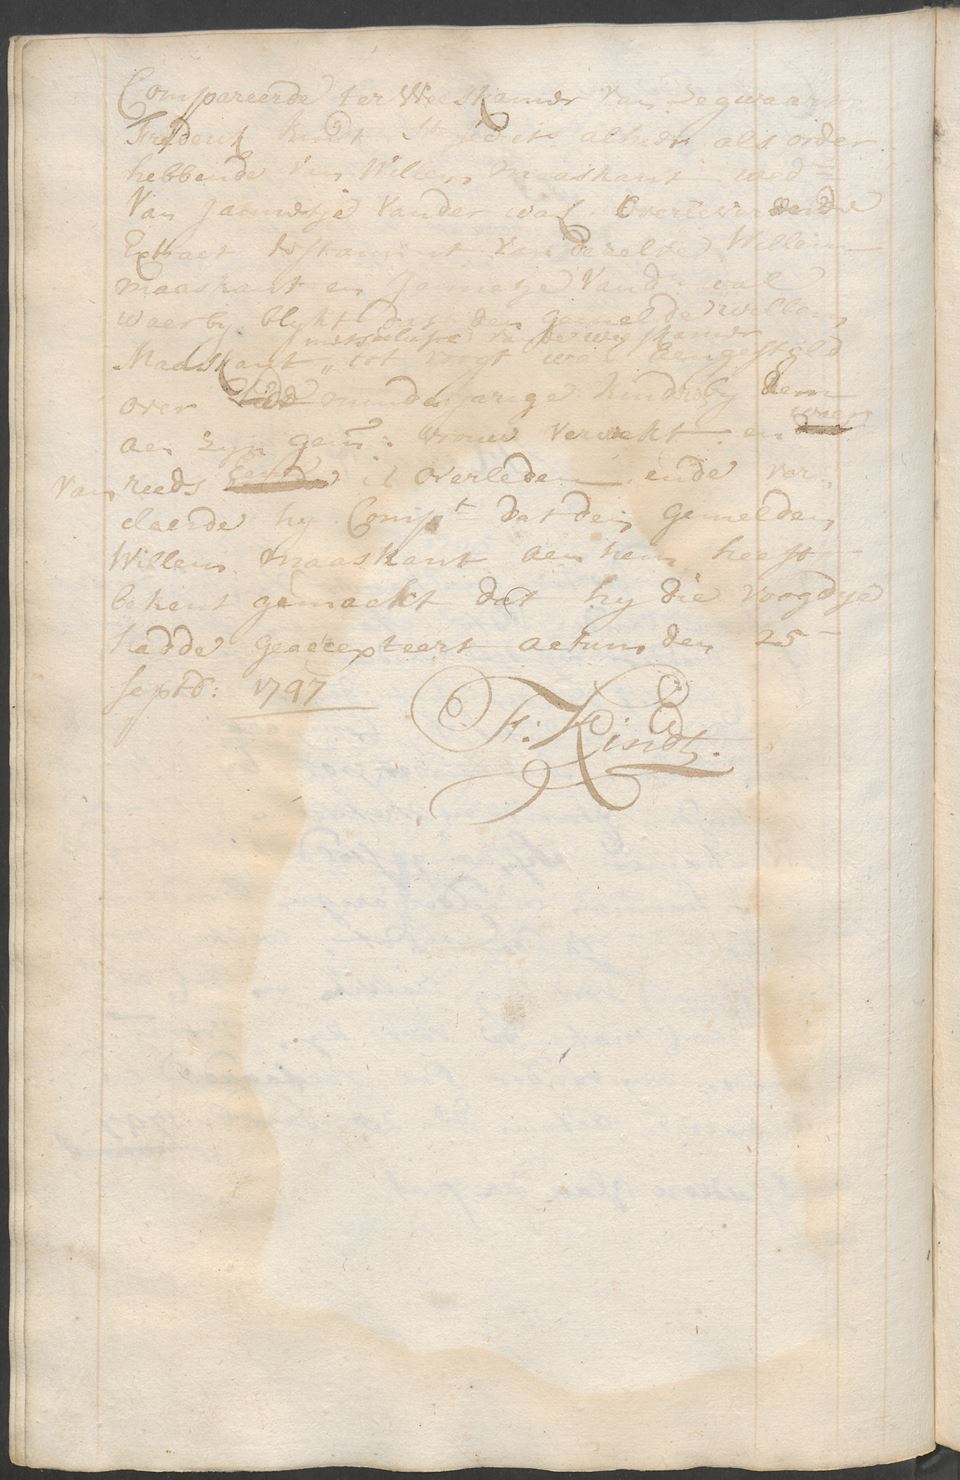 Compareerde ter Weeskamer van Zegwaart
Frederik Kindt als order
hebbende van Willem Maaskant wed:
van Jannetje vander wal overleverende
Extract testament van dezelve Willem
Maaskant en Jannetje vand: wal
waerby blykt dat den gemelde Willem
met seclusie van de weeskamer
Maaskant „ tot voogt was aengesteld
over minderjarige kindr: by hem
aen zyn gem: vrouw verwekt en waer
van reeds is overleden ende ver-
claerde hy Compt dat den gemelden
Willem Maaskant aen hem heeft
bekent gemackt dat hy die voogdye
hadde geaccepteert actum den 25
septb: 1797
F: Kindt.